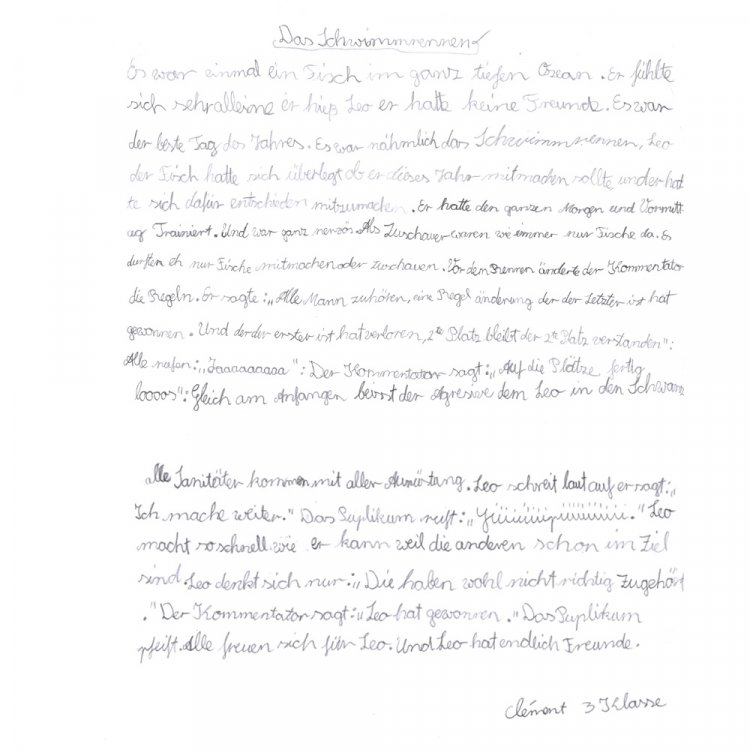 Das Schwimmrennen
Es war einmal ein Fisch im ganz tiefen Ozean. Er fühlte
sich sehr alleine er hieß Leo er hatte keine Freunde. Es war
der beste Tag des Jahres. Es war nähmlich das Schwimmrennen, Leo
der Fisch hatte sich überlegt ob er dieses Jahr mitmachen sollte und er hat
te sich dafür entschieden mitzumachen. Er hatte den ganzen Morgen und Vormitt
ag Trainiert. Und war ganz nervös. Als Zuschauer waren wie immer nur Fische da. Es
durften eh nur Fische mitmachen oder zuschauen. Vor dem Rennen änderte der Kommentator
die Regeln. Er sagte: „Alle Mann zuhören, eine Regel änderung der der Letzter ist hat
gewonnen. Und der der erster ist hat verloren, 2te Platz bleibt der 2te Platz verstanden":
Alle rufen: „Jaaaaaaaaa": Der Kommentator sagt: „Auf die Plätze fertig
loooos": Gleich am Anfangen beisst der Agresive dem Leo in den Schwanz
alle Sanitäter kommen mit aller Ausrüstung. Leo schreit laut auf er sagt: „
Ich mache weiter." Das Puplikum ruft: „ Leo
macht so schnell wie er kann weil die anderen schon im Ziel
sind. Leo denkt sich nur: „Die haben wohl nicht richtig Zugehört
." Der Kommentator sagt: „Leo hat gewonnen." Das Puplikum
pfeift. Alle freuen sich für Leo. Und Leo hat endlich Freunde.
Clément 3 Klasse